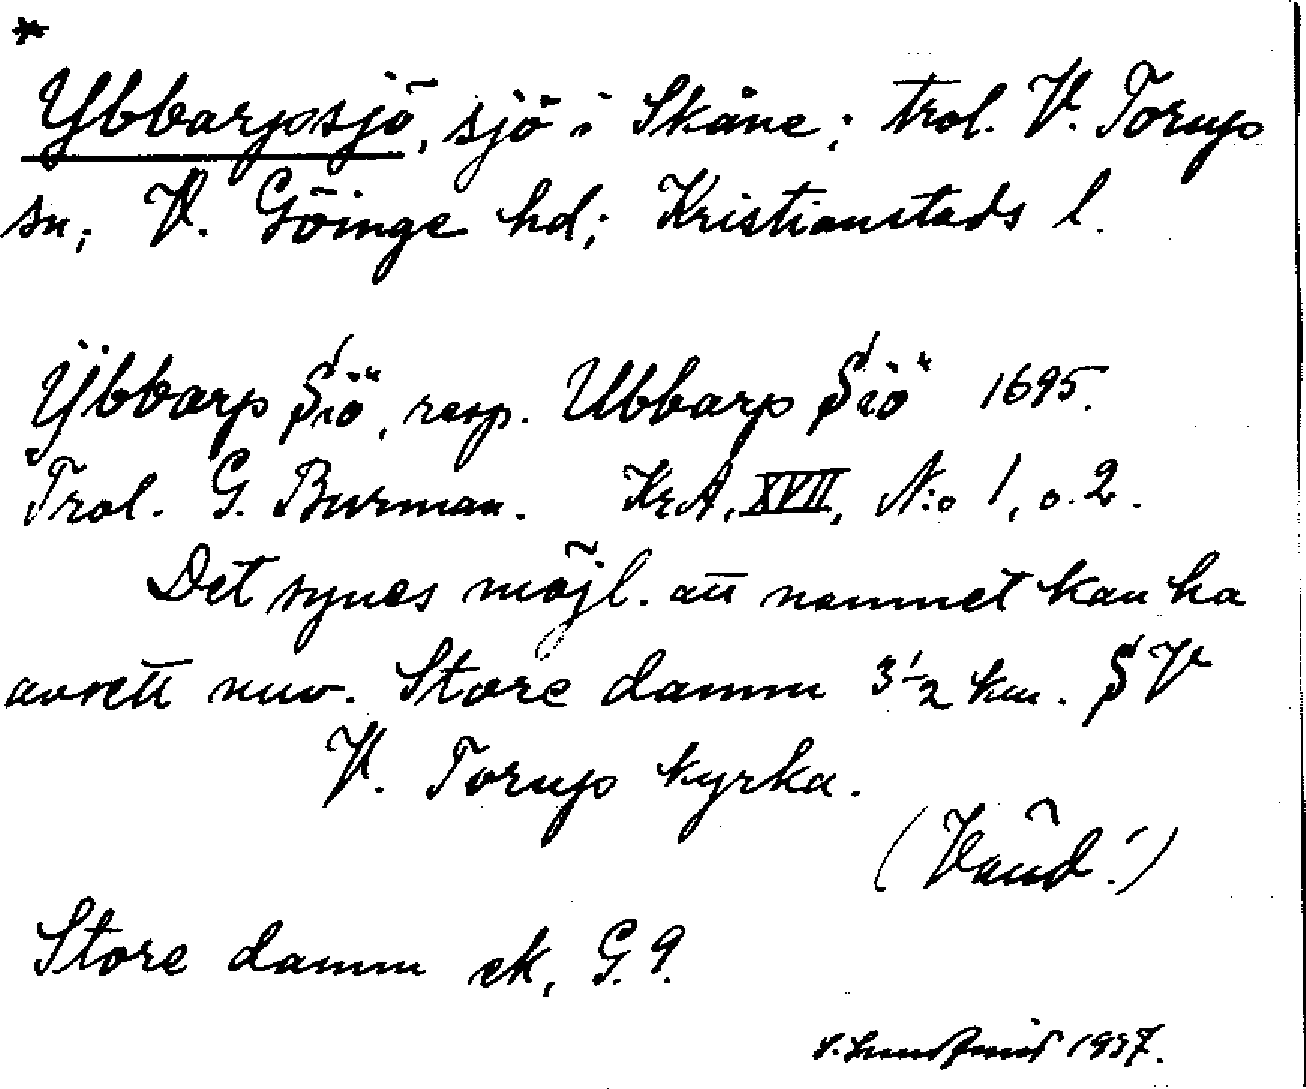 *
Ybbarpsjö, sjö i Skåne; trol. V. Torups
sn; V. Göinge hd; Kristianstads l.
Ÿbbarp Siö, resp. Ubbarp Siö 1695.
Trol. G. Burman. KrA, XVII, N:o 1, o. 2.
Det synes möjl. att namnet kan ha
avsett nuv. Store damm 3 1/2 km. SV
V. Torups kyrka.
(Vänd!)
Store damm ek, G. 9.
1937.